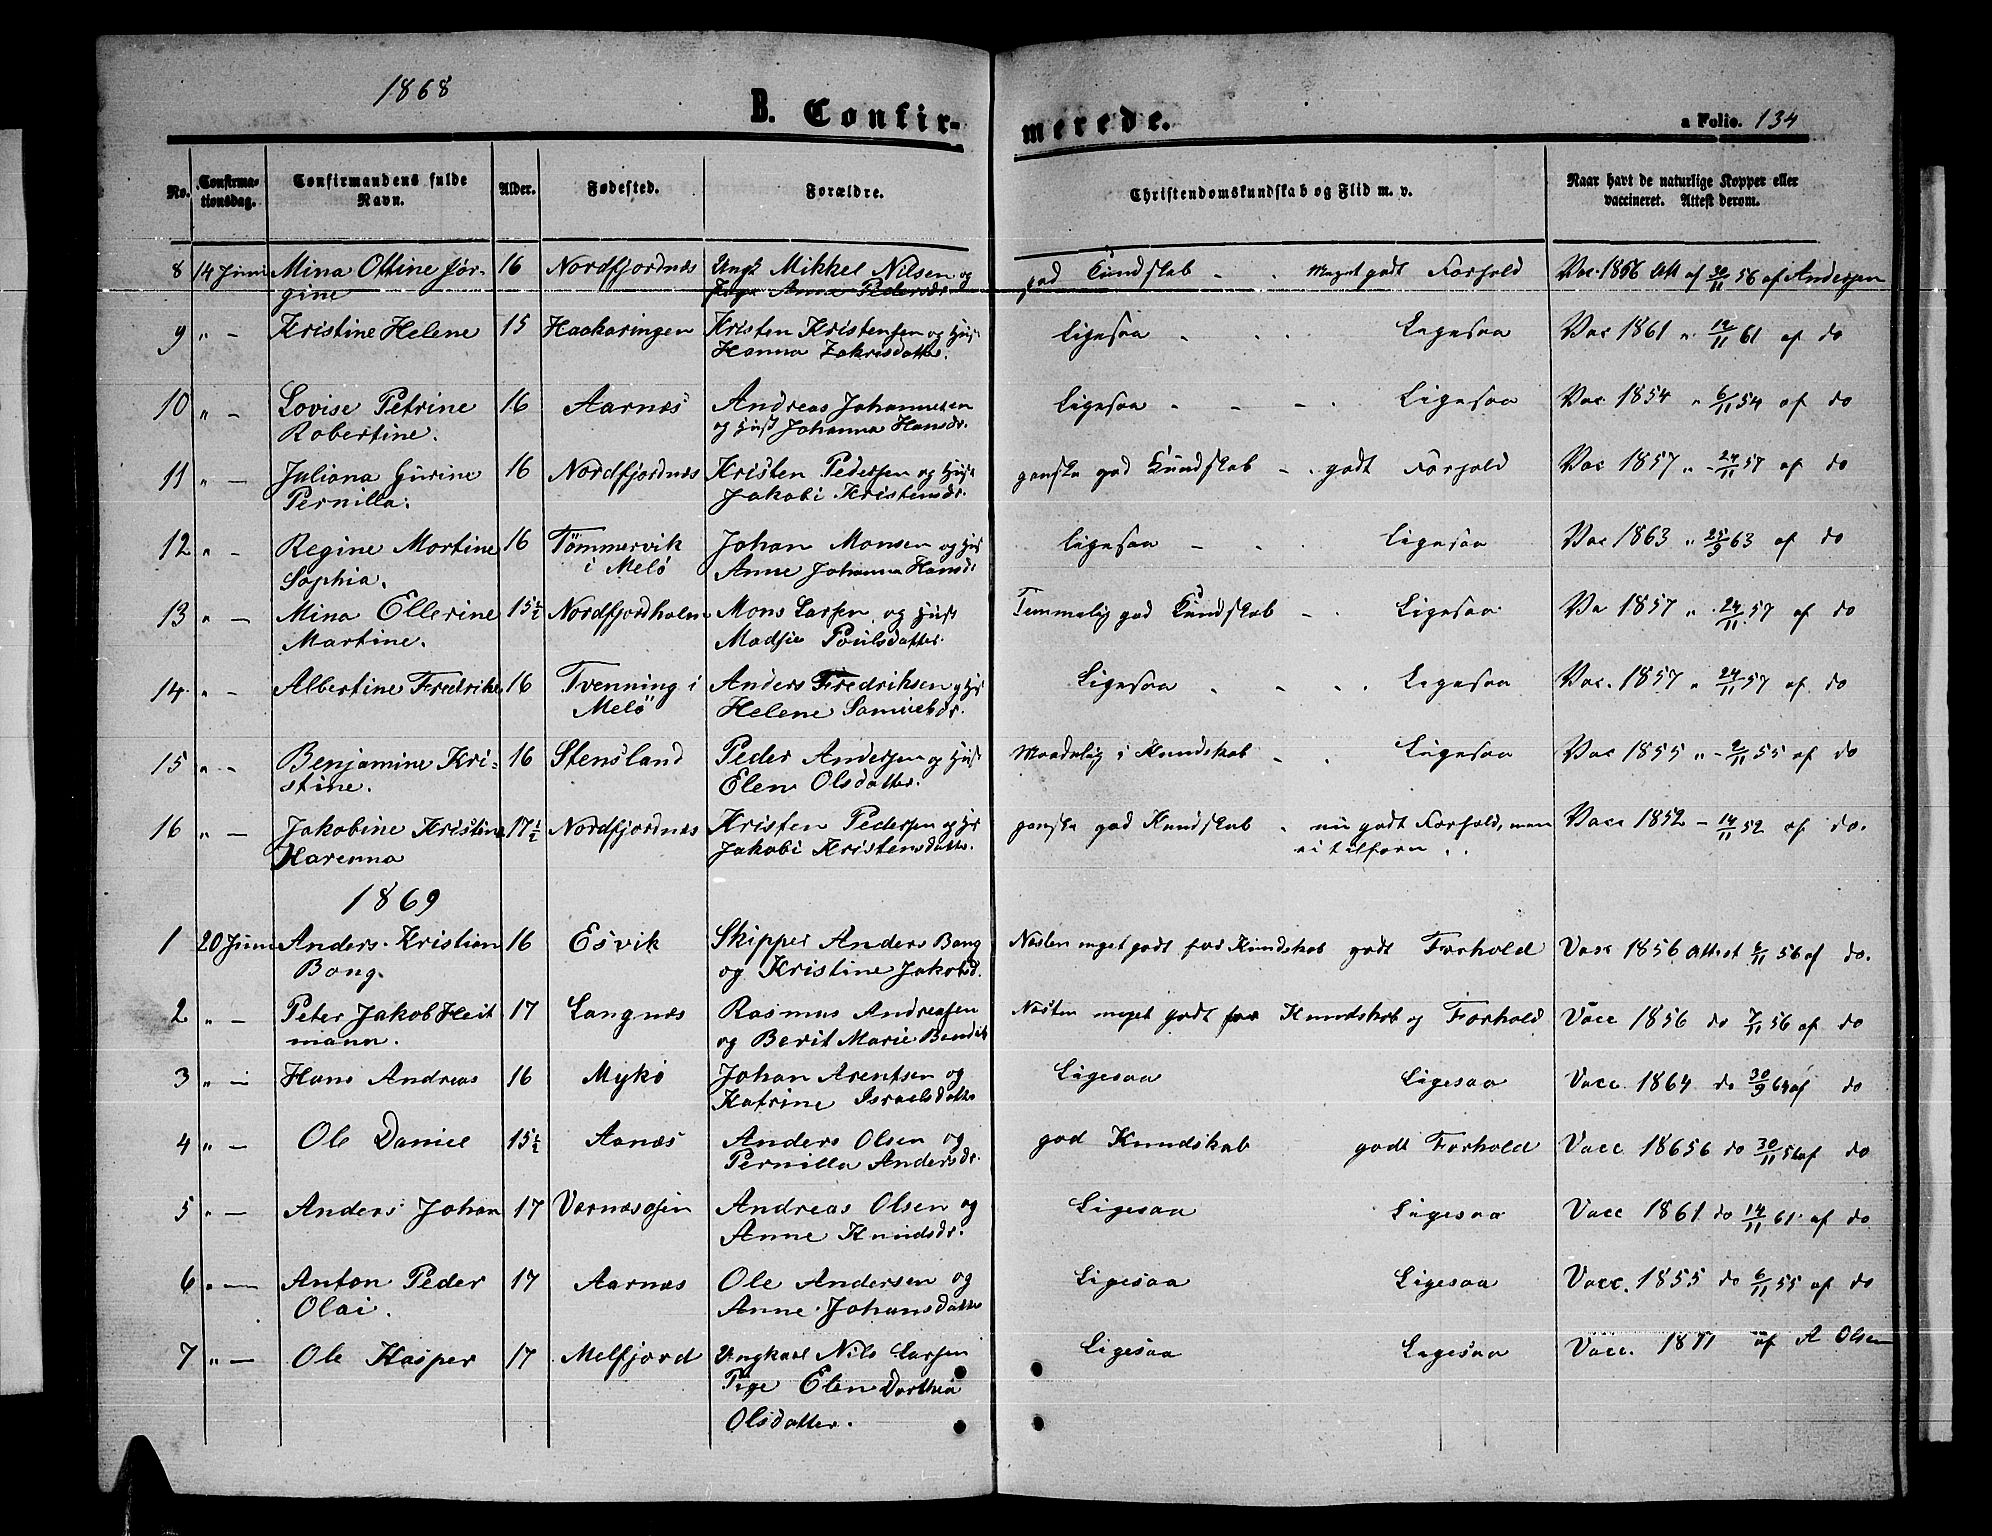 1868
B. Confir-
merede.
a Folio. 134
No.
Confirma-
tionsdag.
Confirmandens fulde
Navn.
Alder.
Fødested.
Forældre.
Christendomskundskab og Flid m. v.
Naar havt de naturlige Kopper eller
vaccineret. Attest derom.
8 14 Juni Mina Ottine Jør- 16 Nordfjordnæs Ungk Mikkel Nilsen og god Kundskab - - Meget godt Forhold Vac. 1856 Att af 30/11 56 af Andersen
gine Pige Anna Pedersdr
9 " - Kristine Helene 15 Haakaringen Kristen Kristensen og Hust. Ligesaa - - - Ligesaa Vac 1861 " 12/11 61 af do
Hanna Zakrisdatter.
10 " - Lovise Petrine 16 Aarnæs Andreas Johannesen Ligesaa - - - - Ligesaa Vac 1854 " 6/11 54 af do
Robertine. og Hust Johanna Hansdr.
11 " - Juliana Gurine 16 Nordfjordnæs Kristen Pedersen og Hust ganske god Kundskab - - godt Forhold Vac 1857 " - 24/11 57 af do
Pernilla. Jakobi Kristensdr.
12 " - Regine Mortine 16 Tømmervik Johan Monsen og Hust Ligesaa - - - Ligesaa Vac 1863 " 25/9 63 af do
Sophia. i Melö Anne Johanna Hansdr
13 " - Mina Ellerine 15½ Nordfjordholm Mons Larsen og Hust Temmelig god Kundskab - - Ligesaa Va 1857 " 24/11 57 af do
Martine. Madsie Poulsdatter.
14. " - Albertine Fredrikke 16 Tvenning i Anders Fredriksen og Hust Ligesaa - - - Ligesaa Vac. 1857 " 24/11 57 af do
Melö Helene Samuelsdr.
15 " - Benjamine Kri- 16 Stensland Peder Andersen og Hust Maadelig i Kundskab - - Ligesaa Vac 1855 " - 2/11 55 af do
stine. Elen Olsdatter.
16 " - Jakobine Kristine 17½ Nordfjordnæs Kristen Pedersen og Hst ganske god Kundskab - nu godt Forhold, men Vacc 1852 - 14/11 52 af do.
Harenna Jakobi Kristensdatter. ei tilforn . .
1869
1 20 Juni Anders Kristian 16 Esvik Skipper Anders Bang Næsten meget godt for Kundskab godt Forhold Vacc 1856 Attest 6/11 56 af do.
Bang. og Kristine Jakobsd.
2 " - Peter Jakob Heit 17 Langnæs Rasmus Andreasen Næsten meget godt for Kundskab og Forhold Vacc 1856 do 7/11 56 af do
mann. og Berit Marie Bendik
3 " - Hans Andreas 16 Mykö Johan Arentsen og Ligesaa Ligesaa Vacc 1864 do 30/9 64 af do
Katrine Israelsdatter
4 " - Ole Daniel 15½ Aanæs Anders Olsen og god Kundskab godt Forhold Vacc 18656 do 30/11 56 af do
Pernilla Andersdr.
5 " - Anders Johan 17 Værnæsøien Andreas Olsen og Ligesaa Ligesaa Vacc 1861 do 14/11 61. af do
Anne Knudsdr.
6 " - Anton Peder 17 Aarnæs Ole Andersen og Ligesaa Ligesaa Vacc. 1855 do 6/11 55 af do
Olai. Anne Johansdatter
7 " - Ole Kasper 17 Melfjord Ungkarl Nils Larsen Ligesaa Ligesaa Vacc. 1871 af A Olsen
Pige Elen Dorthea
Olsdatter.